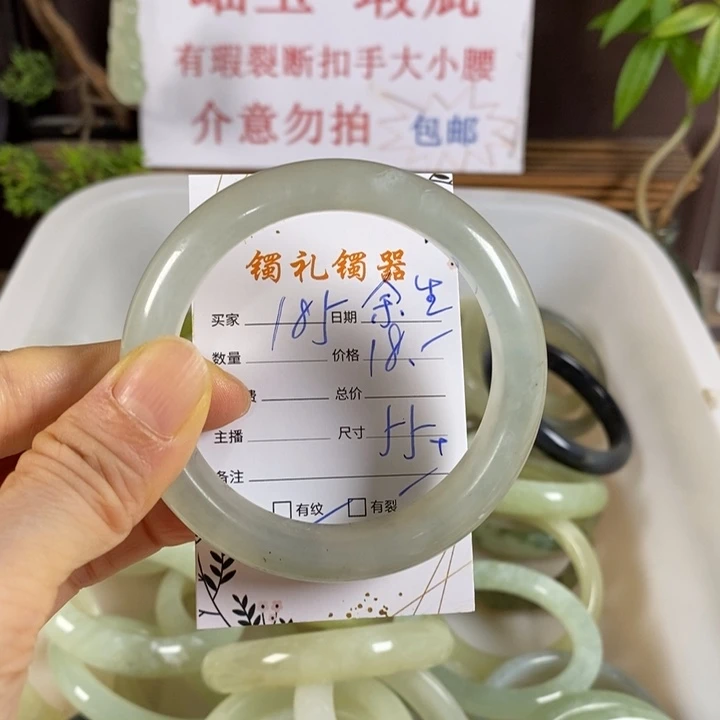 岫玉 瑕疵
有瑕裂断扣手大小腰
介意勿拍 包邮
镯礼镯器
买家 185 日期 余生
数量 价格 18.-
费 总价
主播 尺寸 55+
备注
有纹 有裂